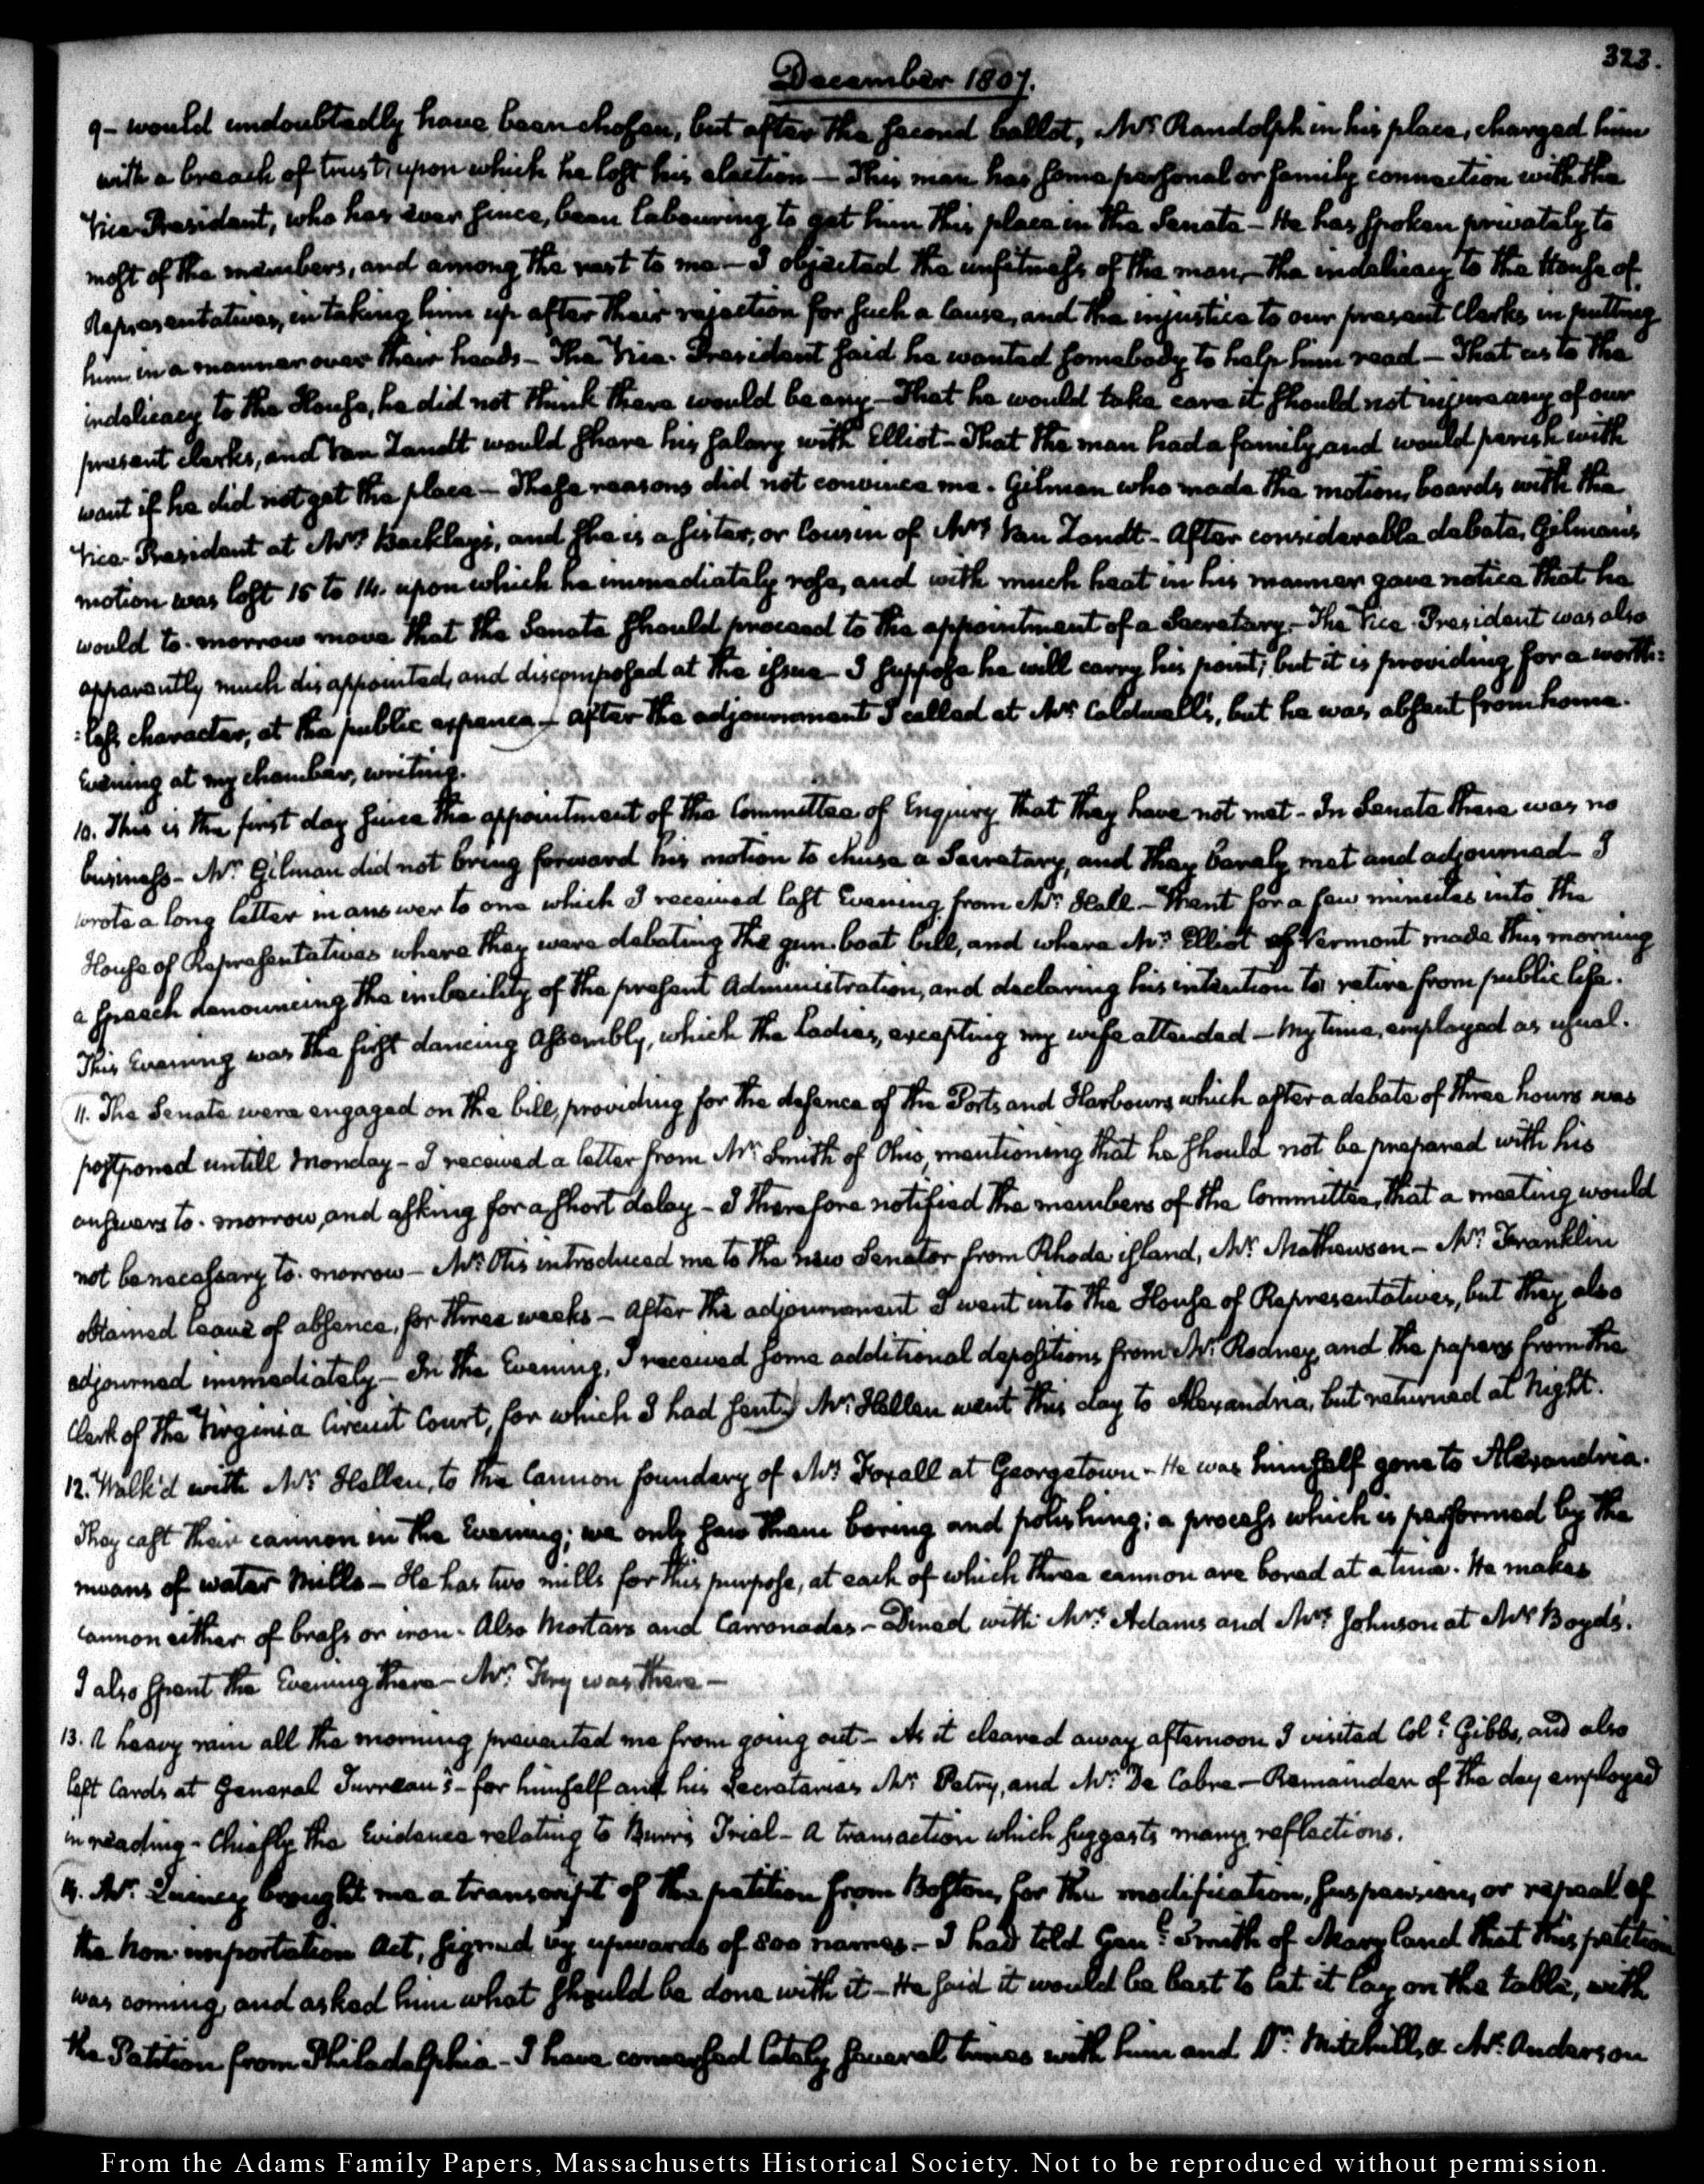 323.
December 1807.
9 - would undoubtedly have been chosen, but after the second ballot, Mr. Randolph in his place, charged him
with a breach of trust, upon which he lost his election — This man has some personal or family connection with the
Vice-President, who has ever since, been labouring to get him this place in the Senate — He has spoken privately to
most of the members, and among the rest to me — I objected the unfitness of the man, — the indelicacy to the House of
Representatives, in taking him up after their rejection for such a cause, and the injustice to our present Clerks in putting
him in a manner over their heads — The Vice-President said he wanted somebody to help him read — That as to the
indelicacy to the House, he did not think there would be any — That he would take care it should not injure any of our
present clerks, and Van Zandt would share his salary with Elliot — That the man had a family, and would perish with
want if he did not get the place — These reasons did not convince me. Gilman who made the motion, boards with the
Vice-President at Mrs. Beckley's, and she is a sister, or Cousin of Mrs Van Zandt — After considerable debate, Gilman's
motion was lost 15 to 14. upon which he immediately rose, and with much heat in his manner gave notice that he
would to-morrow move that the Senate should proceed to the appointment of a Secretary. — The Vice-President was also
apparently much disappointed, and discomposed at the issue — I suppose he will carry his point; but it is providing for a worth=
=less character, at the public expence — After the adjournment I called at Mr. Coldwell's, but he was absent from home.
Evening at my chamber, writing.
10. This is the first day since the appointment of the Committee of Enquiry that they have not met — In Senate there was no
business — Mr. Gilman did not bring forward his motion to chuse a Secretary, and they barely met and adjourned — I
wrote a long letter in answer to one which I received last Evening from Mr. Hall — Went for a few minutes into the
House of Representatives where they were debating the gun-boat bill, and where Mr. Elliot of Vermont made this morning
a speech denouncing the imbecility of the present Administration, and declaring his intention to retire from public life.
This Evening was the first dancing Assembly, which the Ladies, excepting my wife attended — My time, employed as usual.
11. The Senate were engaged on the bill, providing for the defence of the Ports and Harbours which after a debate of three hours was
postponed untill Monday — I received a letter from Mr. Smith of Ohio, mentioning that he should not be prepared with his
answers to-morrow, and asking for a short delay — I therefore notified the members of the Committee, that a meeting would
not be necessary to-morrow — Mr. Otis introduced me to the new Senator from Rhode island, Mr. Mathewson — Mr. Franklin
obtained leave of absence, for three weeks — After the adjournment I went into the House of Representatives, but they also
adjourned immediately — In the Evening, I received some additional depositions from Mr. Rodney, and the papers from the
Clerk of the Virginia Circuit Court, for which I had sent. Mr. Hellen went this day to Alexandria, but returned at Night.
12. Walk'd with Mr. Hellen, to the Cannon foundery of Mr. Foxall at Georgetown — He was himself gone to Alexandria.
They cast their cannon in the Evening; we only saw them boring and polishing; a process which is performed by the
means of water Mills — He has two mills for this purpose, at each of which three cannon are bored at a time. He makes
cannon either of brass or iron. Also Mortars and Carronades — Dined with Mrs. Adams and Mrs. Johnson at Mr Boyd's.
I also spent the Evening there — Mr. was there —
13. A heavy rain all the morning prevented me from going out — As it cleared away afternoon I visited Coll. Gibbs, and also
left Cards at General Turreau's — for himself and his Secretaries Mr. Petry, and Mr. De Cabre — Remainder of the day employed
in reading — Chiefly the Evidence relating to Burr's Trial — A transaction which suggests many reflections.
14. Mr. Quincy brought me a transcript of the petition from Boston, for the modification, suspension, or repeal of
the non-importation Act, signed by upwards of 800 names. — I had told Genl. Smith of Maryland that this petition
was coming, and asked him what should be done with it — He said it would be best to let it lay on the table, with
the Petition from Philadelphia — I have conversed lately several times with him and Dr. Mitchill, & Mr. Anderson
From the Adams Family Papers, Massachusetts Historical Society. Not to be reproduced without permission.